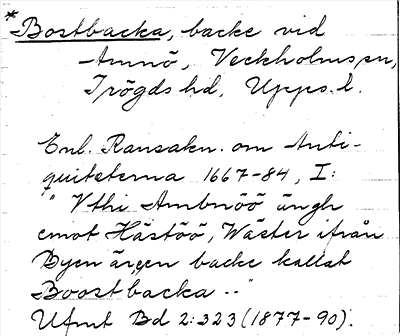 *Bostbacka, backe vid
Amnö, Veckholms sn,
Trögds hd, Upps. l.
Enl. Ransakn. om Anti-
quiteterna 1667-84, I:
" Vthi Ambnöö ängh
emot Hästöö, Wäster ifrån
Byen är een backe kallat
Boostbacka --"
Ufmt Bd 2:323 (1877-90).